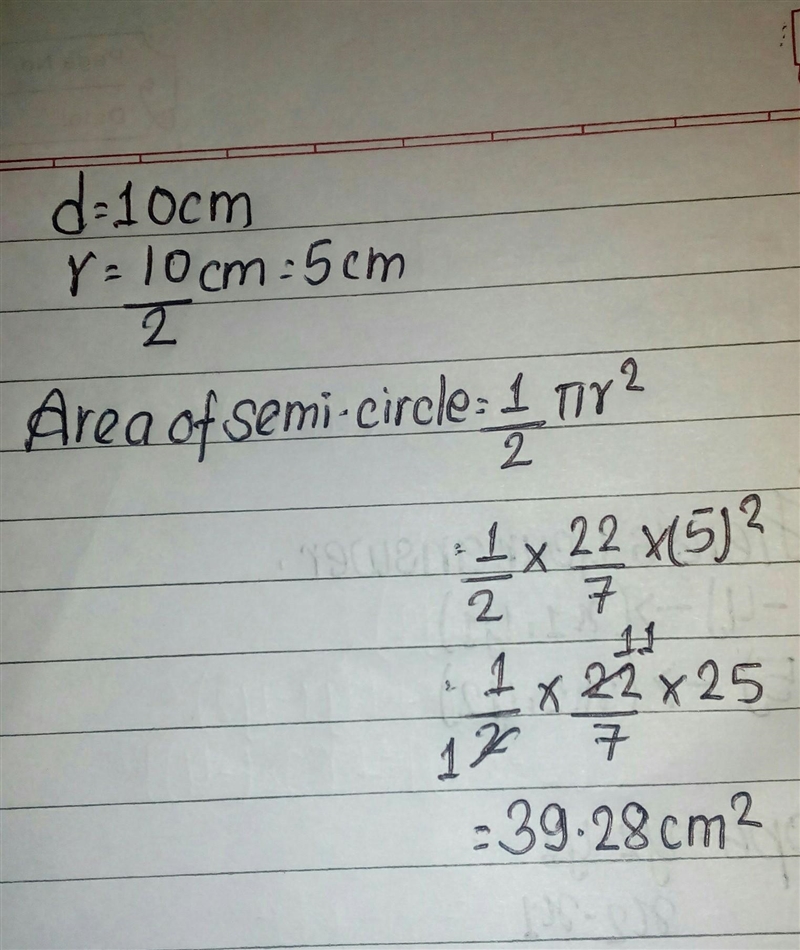 d=10cm
r=10/2 cm=5cm
Area of semi-circle=1/2 πr²
=1/2 × 22/7 ×(5)²
=1/2 × 22/7 ×25
11
1
=39.28cm²